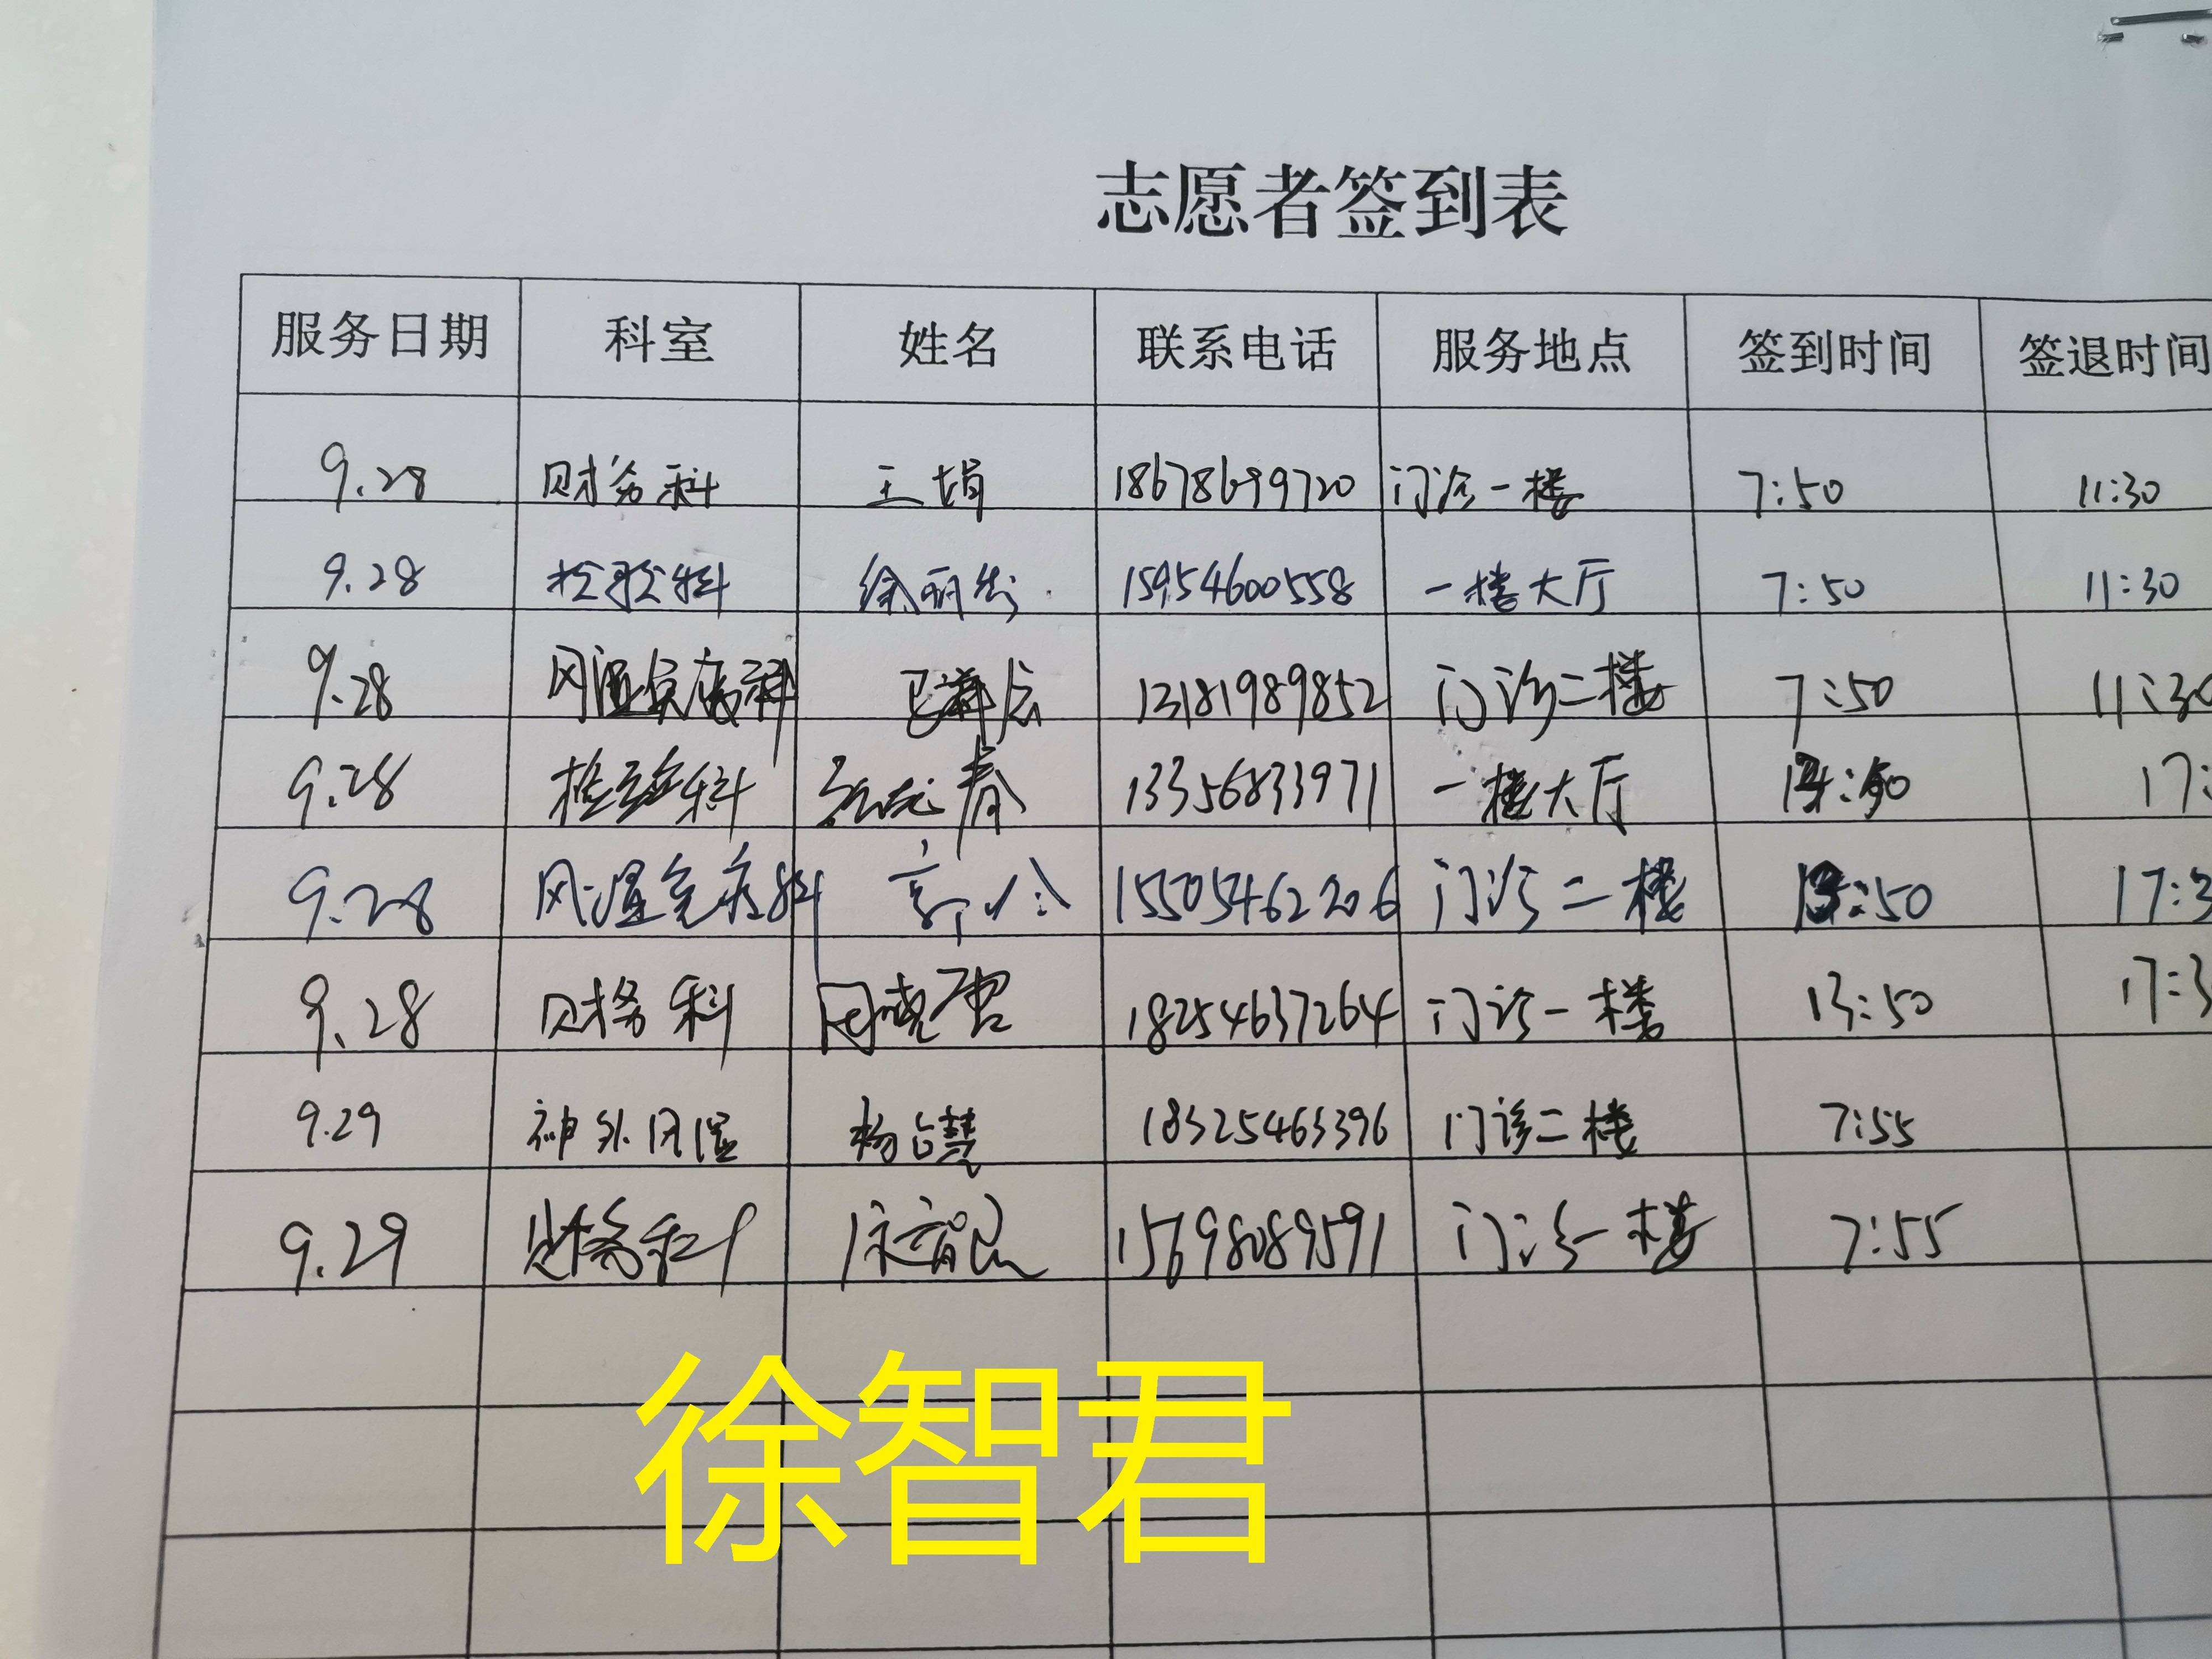 志愿者签到表
服务日期 科室 姓名 联系电话 服务地点 签到时间 签退时间
9.28 财务科 王娟 18678699720 门诊一楼 7:50 11:30
9.28 检验科 15954600558 一楼大厅 7:50 11:30
9.28 13181989852 门诊二楼 7:50 11:30
9.28 检验科 13356833971 一楼大厅 17:
9.28 风湿免疫科 15505462206 门诊二楼 :50 17:3
9.28 财务科 18254637264 门诊一楼 13:50 17:3
9.29 神外风湿 18325463396 门诊二楼 7:55
9.29 财务科 15698089591 门诊一楼 7:55
徐智君